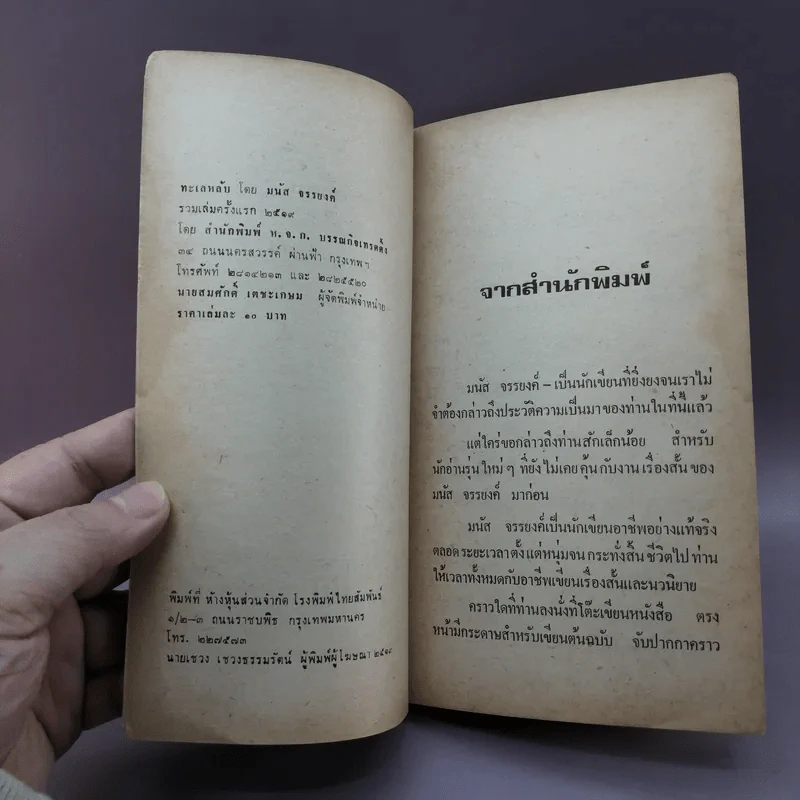 ทะเลหลับ โดย มนัส จรรยงค์
รวมเล่มครั้งแรก ๒๕๑๙
โดย สำนักพิมพ์ ห.จ.ก. บรรณกิจเทรดดิ้ง
๓๔ ถนนนครสวรรค์ ผ่านฟ้า กรุงเทพฯ
โทรศัพท์ ๒๘๑๔๒๑๓ และ ๒๘๒๕๕๒๐
นายสมศักดิ์ เตชะเกษม ผู้จัดพิมพ์จำหน่าย
ราคาเล่มละ ๑๐ บาท
พิมพ์ที่ ห้างหุ้นส่วนจำกัด โรงพิมพ์ไทยสัมพันธ์
๑/๒–๓ ถนนราชบพิธ กรุงเทพมหานคร
โทร. ๒๒๗๕๗๓
นายเชวง เชวงธรรมรัตน์ ผู้พิมพ์ผู้โฆษณา ๒๕๑๙
จากสำนักพิมพ์
มนัส จรรยงค์ – เป็นนักเขียนที่ยิ่งยงจนเราไม่
จำต้องกล่าวถึงประวัติความเป็นมาของท่านในที่นี้แล้ว
แต่ใคร่ขอกล่าวถึงท่านสักเล็กน้อย สำหรับ
นักอ่านรุ่นใหม่ๆ ที่ยังไม่เคยคุ้นกับงานเรื่องสั้นของ
มนัส จรรยงค์ มาก่อน
มนัส จรรยงค์เป็นนักเขียนอาชีพอย่างแท้จริง
ตลอดระยะเวลาตั้งแต่หนุ่มจนกระทั่งสิ้นชีวิตไป ท่าน
ให้เวลาทั้งหมดกับอาชีพเขียนเรื่องสั้นและนวนิยาย
คราวใดที่ท่านลงนั่งที่โต๊ะเขียนหนังสือ ตรง
หน้ามีกระดาษสำหรับเขียนต้นฉบับ จับปากกาคราว